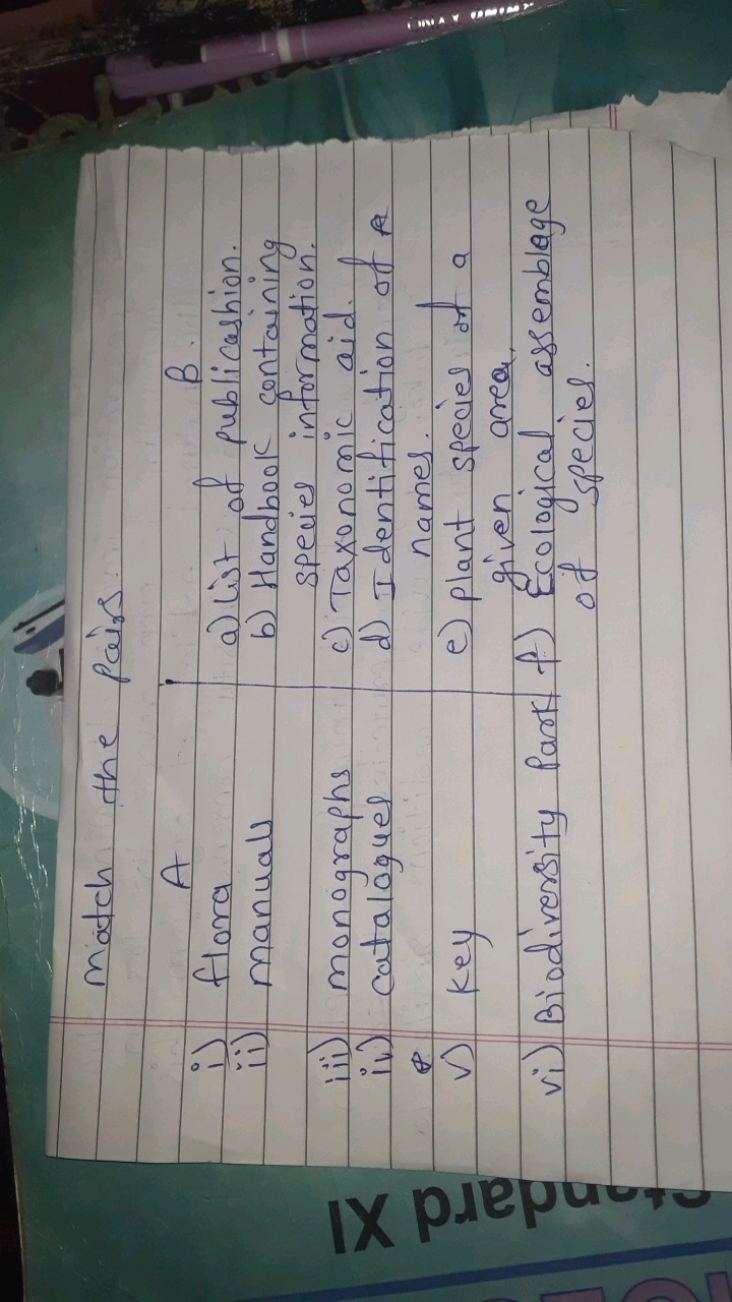 Match the pairs.
A B.
i) flora a) List of publicashion.
ii) manuals b) Handbook containing
species information.
iii) monographs c) Taxonomic aid.
iv) catalogues d) Identification of
names.
v) key e) plant species of a
given area.
vi) Biodiversity Park f) Ecological assemblage
of species.
Standard XI